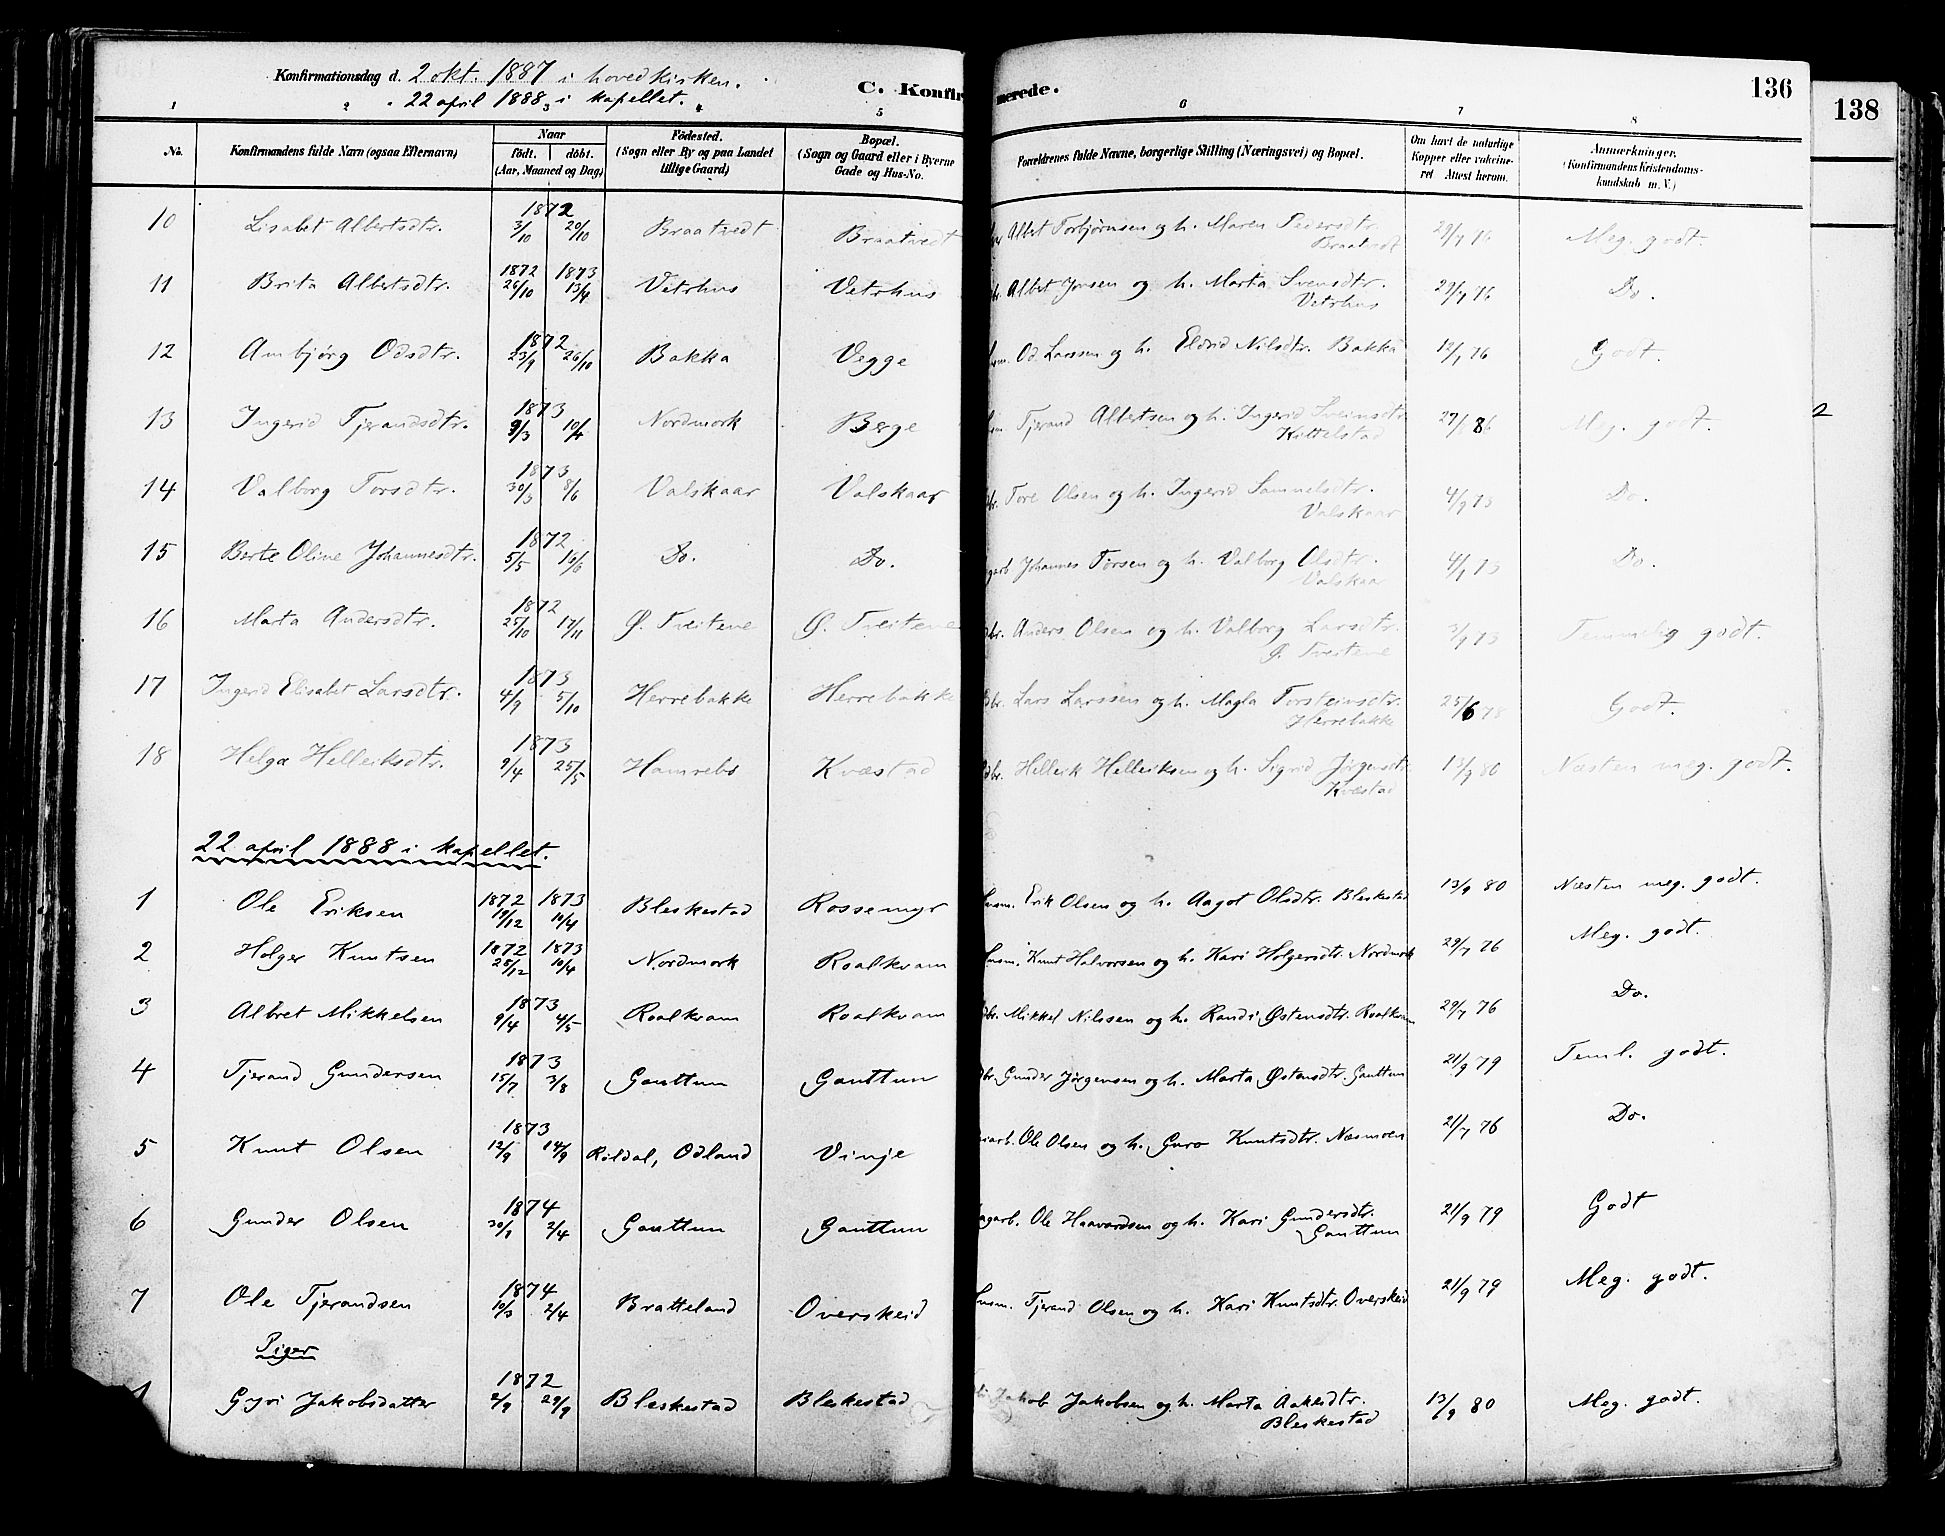 Konfirmationsdag d. 2 okt. 1887 i hovedkirken.
" " 22 april 1888 i kapellet. "
C. Konfirmerede.
136
138
1 2 3 4 5 6 7 8
No. Konfirmandens fulde Navn (ogsaa Efternavn) Naar født. døbt. (Aar, Maaned og Dag) Fødested. (Sogn eller By og paa Landet tillige Gaard) Bopæl. (Sogn og Gaard eller i Byerne Gade og Hus-No. Forældrenes fulde Navne, borgerlige Stilling (Næringsvei) og Bopæl. Om havt de naturlige Kopper eller vakcineret Attest herom. Anmærkninger, (Konfirmandens Kristendomskundskab m. V.)
10 Lisabet Albertsdtr. 1872 3/10 20/10 Braatvedt Braatvedt Albet Torbjørnsen og h. Maren Pedersdtr. Braatvedt 29/7 76 Meg. godt.
11 Brita Albertsdtr. 1872 26/10 1873 13/4 Vetrhus Vetrhus Albet Jonsen og h. Marta Svensdtr. Vetrhus 29/7 76 Do.
12 Anbjørg Odsdtr. 1872 23/9 26/10 Bakka Vegge Od Larssen og h. Eldrid Nilsdtr. Bakka 76 Godt.
13 Ingerid Tjerandsdtr. 1873 9/3 10/4 Nordmork Berge Tjerand Albertsen og h. Ingerid Sveinsdtr. Kittelstad 86 Meg. godt.
14 Valborg Torsdtr. 1873 30/3 8/6 Valskaar Valskaar Tore Olsen og h. Ingerid Samuelsdtr. Valskaar 4/9 73 Do.
15 Berte Oline Johannesdtr. 1872 5/5 16/6 Do. Do. Johannes Torsen og h. Valborg Olsdtr. Valskaar 73 Do.
16 Marta Andersdtr. 1872 25/10 17/11 Ø. Tveitene Ø. Tveitene Anders Olsen og h. Valborg Larsdtr. Ø. Tveitene 3/9 73 Temmelig godt.
17 Ingerid Elisabet Larsdtr. 1873 4/9 5/10 Herrebakke Herrebakke Lars Larssen og h. Magla Torsteinsdtr. Herrebakke 25/6 78 Godt.
18 Helga Helleiksdtr. 1873 9/4 25/5 Hamrebø Kvæstad Helleik Helleiksen og h. Sigrid Jørgensdtr. Kvæstad 13/9 80 Næsten meg. godt.
22 april 1888 i kapellet.
1 Ole Eriksen 1872 19/12 1873 14/4 Bleskestad Rossemyr Husm. Erik Olsen og h. Aagot Olsdtr. Bleskestad 13/9 80 Næsten meg. godt.
2 Holger Knutsen 1872 28/12 1873 14/4 Nordmork Roalkvam Husm. Knut Halvorsen og h. Kari Holgersdtr. Nordmork 29/7 76 Meg. godt.
3 Albret Mikkelsen 1873 9/4 4/5 Roalkvam Roalkvam Mikkel Nilssen og h. Randi Østensdtr. Roalkvam 29/7 76 Do.
4 Tjerand Gundersen 1873 15/7 3/8 Gauttun Gauttun Gunder Jørgensen og h. Marta Østensdtr. Gauttun 21/9 79 Teml. godt.
5 Knut Olsen 1873 12/9 14/9 Røldal, Odland Vinje Ole Olsen og h. Guro Knutsdtr. Næsmoen 21/7 76 Do.
6 Gunder Olsen 1874 30/1 2/4 Gauttun Gauttun Dagarb. Ole Haavardsen og h. Kari Gundersdtr. Gauttun 21/9 79 Godt
7 Ole Tjerandsen 1874 10/3 2/4 Bratteland Overskeid Husm. Tjerand Olsen og h. Kari Knutsdtr. Overskeid 21/9 79 Meg. godt.
Piger
1 Gyri Jakobsdatter 1872 2/9 29/9 Bleskestad Bleskestad Jakob Jakobsen og h. Marta Aakesdtr. Bleskestad 13/9 80 Meg. godt.